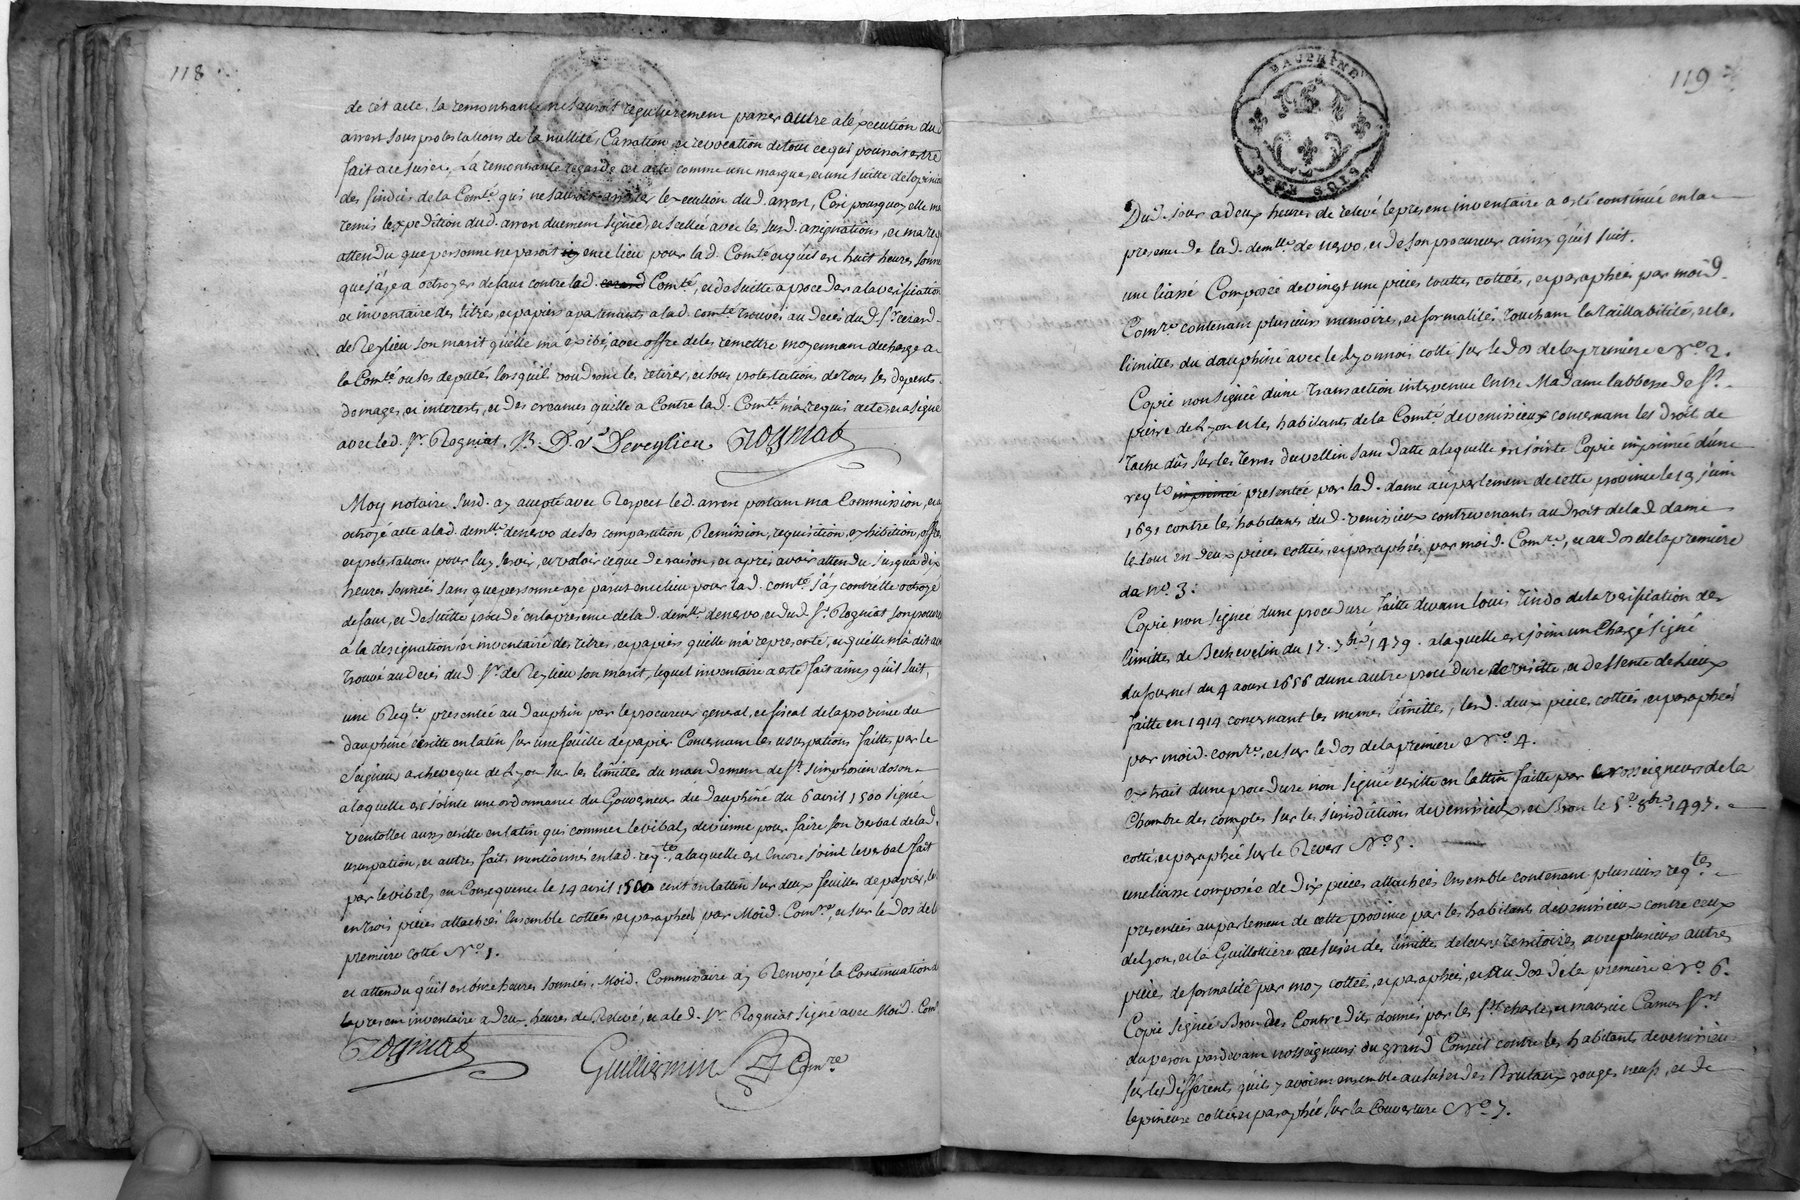 118
de cét acte, la remontrante ne sauroit régulierement passer outre a léxécution dud
arrest sous protestations de la nullité, Cassation, et revocation de tout ce qui pourroit estre
fait a ce sujet, La remontrante regarde cet acte comme une marque, et une suitte de lopinion
des sindics de la Comté qui ne sauroit arrêter lexecution dud. arrest, C'est pourquoy elle ma
remis lexpedition dud. arrest duement signée, et scellée avec les susd. assignations, et ma re
attendu que personne ne paroit en ce lieu pour lad. Comté et qu'il est huit heures sonné
que j'aye a octroyer defaut contre lad. Comté, et de suitte a proceder a la verification
et inventaire des titres, et papiers apartenants a lad. comté trouvés au Decés dud. Sr.
de Reylieu son marit qu'elle ma exibé, avec offre de les remettre moyennant decharge a
la Comté ou ses deputés lorsquil voudront les retirer, et sous protestations de tous ses depents
domages, et interests, et des creances qu'elle a Contre lad. Comté m'a requis acte, et a signé
avec led. Sr. Rogniat,
Rogniat
Moy notaire susd. ay accepté avec Respect led. arrest portant ma Commission, et ay
octroyé acte a lad. demlle. denervo de ses comparution, Remission, requisition, exhibition, offre,
et protestations pour luy servir, et valoir ce que de raison, et apres avoir attendu jusqua dix
heures sonnées sans que personne aye parut en ce lieu pour lad. comté j'ay contre elle octroyé
defaut, et de suitte procedé en la presence de lad. demlle. denervo, et dud. Sr. Rogniat son procureur
a la designation et inventaire des titres, et papiers qu'elle m'a representé, et qu'elle m'a dit avoir
trouvé au decés dud. Sr. de Reylieu son marit, lequel inventaire a esté fait ainsy qu'il suit,
une Reqte. presentée au Dauphin par le procureur general, et fiscal de la province du
dauphiné écritte en latin sur une feuille de papier Concernant les usurpations faittes par le
Seigneur archeveque de Lyon sur les limittes du mandement de St. simphorien doson
a laquelle est jointe une ordonnance du Gouverneur du Dauphiné du 6 avril 1500 signé
Ventollet aussy écritte en latin qui commet le vibaly de vienne pour faire son verbal de lad.
usurpation, et autres faits mentionnés en lad. reqte, a laquelle est Encore joint le verbal fait
par le vibaly en Consequence le 14 avril 1500 écrit en lattin sur deux feuilles de papier, le
en trois pièces attachées Ensemble cottées, et paraphées par Moid. Comre, et sur le dos de la
première cotté No. 1.
et attendu qu'il est onze heures sonnées, Moid. Commissaire ay Renvoyé la Continuation d
le present inventaire a deux heures de Relevé, et a led. Sr. Rogniat signé avec Moid. Com
Rogniat
Guilliermin Comre
DAUPHINE
119
Dud. jour a deux heures de relevé le present inventaire a esté continué en la
presence de lad. demlle. de nervo, et de son procureur ainsy qu'il suit.
une liasse Composée de vingt une pièces touttes cottées, et paraphées par moid.
Comre contenant plusieurs memoires, et formalités touchant la taillabilité, et les
limittes du dauphiné avec le Lyonnois cotté sur le Dos de la premiere No. 2.
Copie non signée d'une transaction intervenue Entre Madame l'abbesse de St.
pierre de Lyon et les habitants de la Comté de venissieux concernant les droit de
tache dûs sur les terres du vellin sans datte a laquelle est jointe Copie imprimée d'une
reqte presentée par lad. dame au parlement de cette province le 19 juin
1631 contre les habitants dud. venissieux contrevenants au droit de lad dame
le tout en deux pièces cottées, et paraphées par moid. Comre, et au dos de la premiere
du no. 3.
Copie non signée d'une procedure faitte devant louis Tindo de la verification des
limittes de Bechevelin du 17. 7bre 1479. a laquelle est joint un Chargé signé
dufournel du 4 aoust 1656 d'une autre procedure de visitte, et dessente de Lieux
faitte en 1414 concernant les memes limittes, lesd. deux pièces cottées, et paraphées
par moid. comre, et sur le dos de la premiere No. 4.
Extrait d'une procedure non signée ecritte en lattin faitte par Nosseigneurs de la
Chambre des comptes sur les jurisdictions de venissieux, et Bron le 5e 8bre 1497.
cotté, et paraphé sur le Revers No. 5.
une liasse composée de Dix pièces attachées Ensemble contenant plusieurs reqtes
presentées au parlement de cette province par les habitants de venissieux contre ceux
de Lyon, et la Guillottiere au sujet des limittes de leurs territoires avec plusieurs autres
pièces de formalité par moy cottées, et paraphées, et au dos de la premiere No. 6.
Copie signée Bron des Contredits donnés par les Srs Charles, et maurice Camus Srs
du peron pardevant nosseigneurs du grand Conseil contre les habitants de venissieu
sur les differents qu'ils y avoient ensemble au sujet des Brotaux rouge, neuf, et de
lepineuse cotté et paraphée sur la Couverture No. 7.